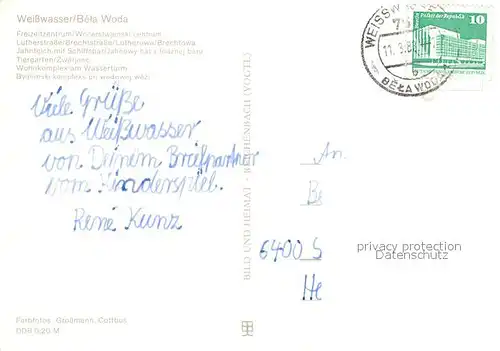 Weißwasser/Běła Woda
Freizeitzentrum/Wočerstajenski centrum
Lutherstraße/Brechtstraße/Lutherowa/Brechtowa
Jahnteich mit Schiffsbar/Jahnowy hat z łódźnej baru
Tiergarten/Zwěrjenc
Wohnkomplex am Wasserturm
Bydlenski kompleks pri wodowej wěži
WEISSWASSER
75
11.3.8
b
BĚŁA WODA
Palast der Republik
10
DDR
Viele Grüße
aus Weißwasser
von Deinem Briefpartner
vom Kinderspiel.
René Kunz
BILD UND HEIMAT · REICHENBACH (VOGTL)
An.
Be
6400 S
He
privacy protection
Datenschutz
Farbfotos: Großmann, Cottbus
DDR 0,20 M